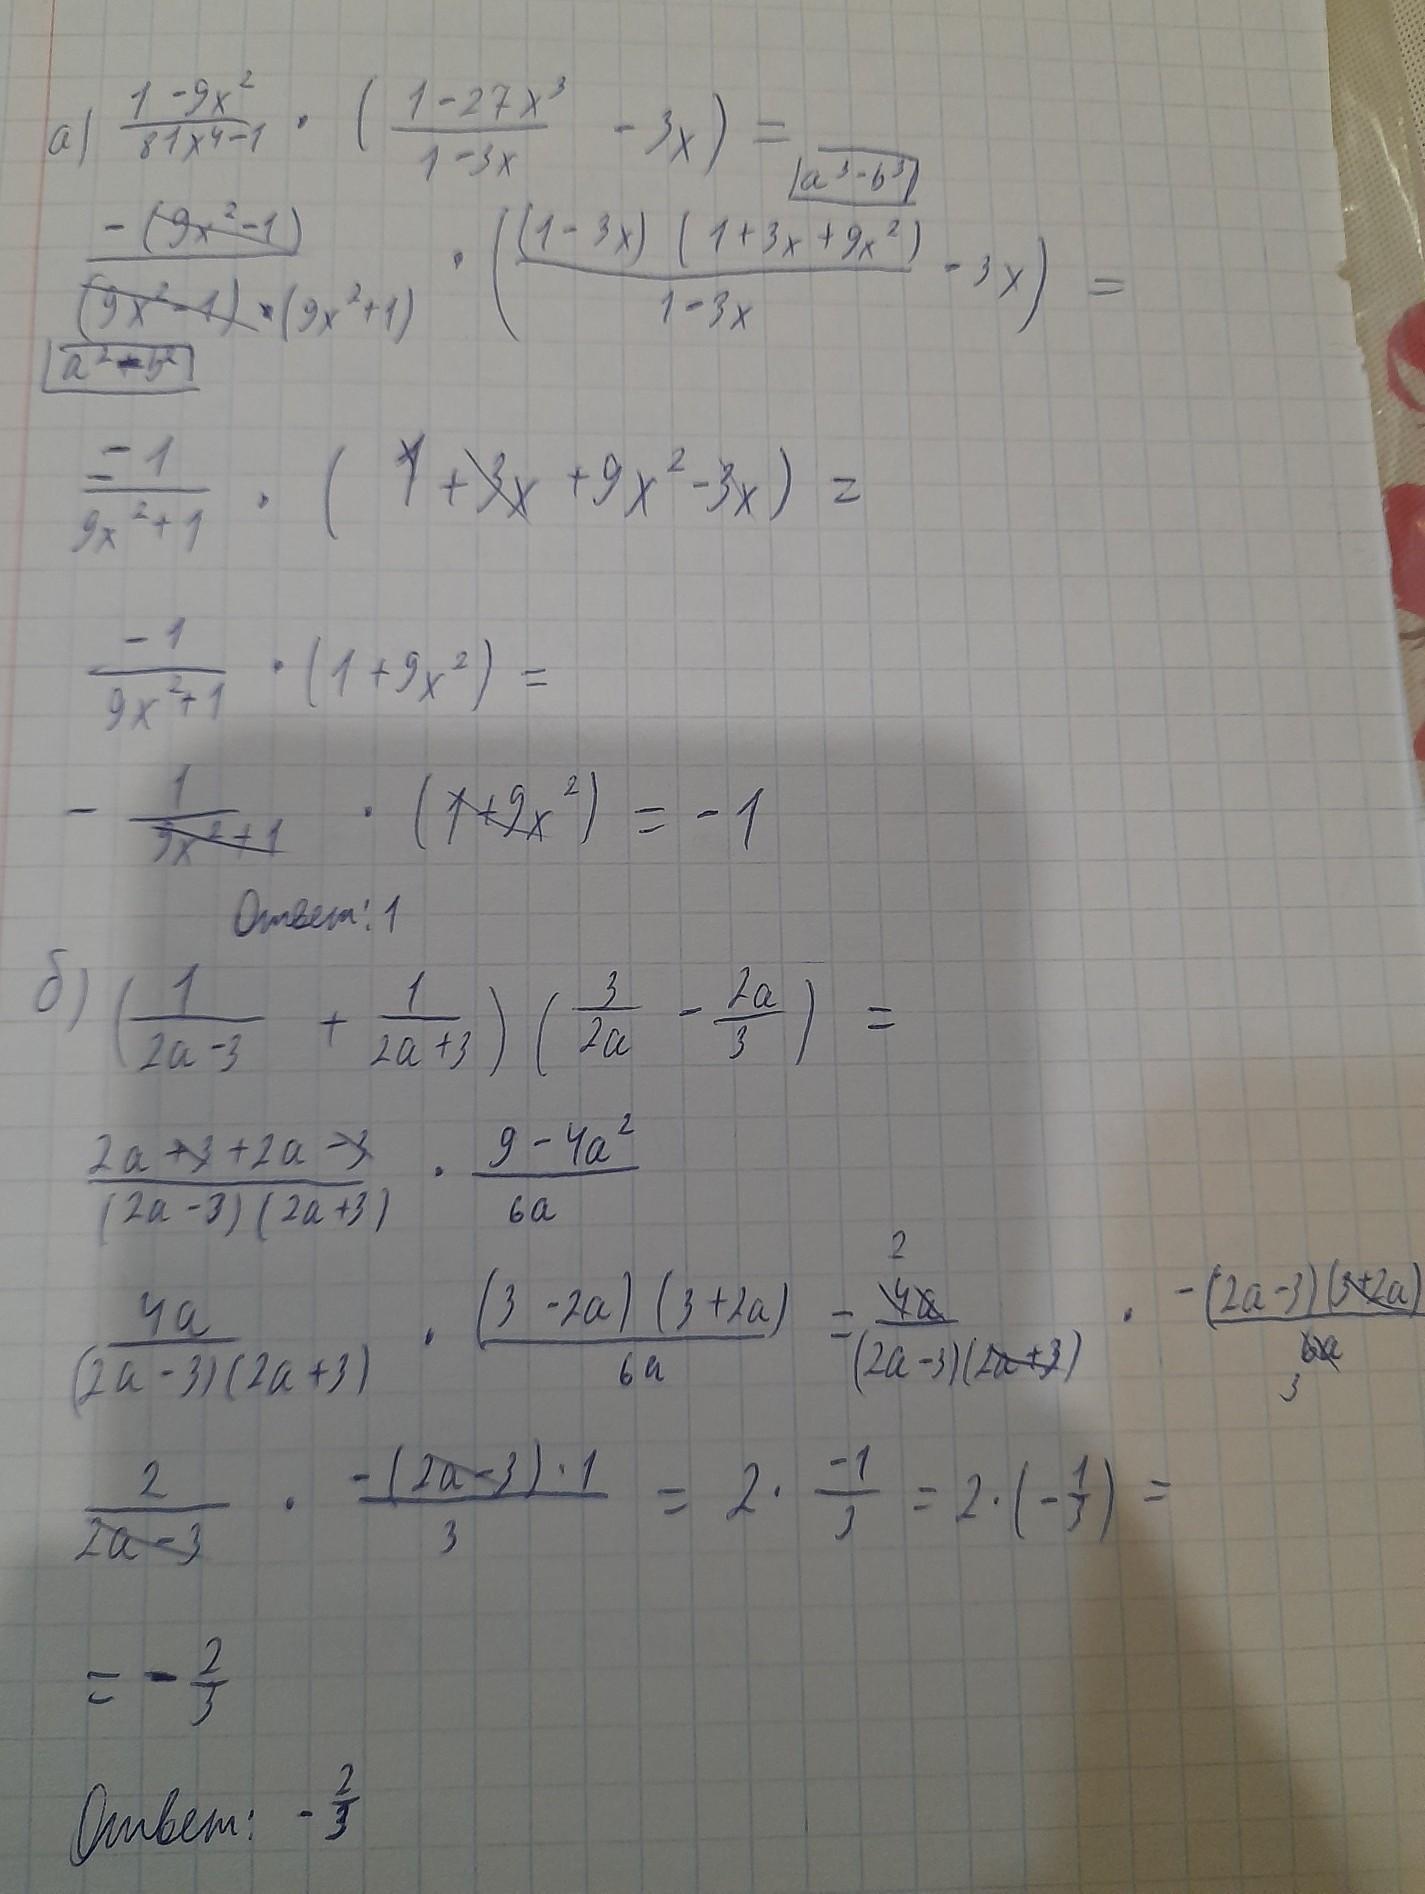 а) (1-9x²)/(81x⁴-1) · ((1-27x³)/(1-3x) - 3x) =
a³-b³
(-(9x²-1))/((9x²-1)·(9x²+1)) · (((1-3x)(1+3x+9x²))/(1-3x) - 3x) =
a²-b²
= -1/(9x²+1) · (1+3x+9x²-3x) =
-1/(9x²+1) · (1+9x²) =
- 1/(9x²+1) · (1+9x²) = -1
Ответ: 1
б) (1/(2a-3) + 1/(2a+3)) (3/2a - 2a/3) =
(2a+3+2a-3)/((2a-3)(2a+3)) · (9-4a²)/6a
4a/((2a-3)(2a+3)) · ((3-2a)(3+2a))/6a = 2 4a/((2a-3)(2a+3)) · (-(2a-3)(3+2a))/6a 3
2/(2a-3) · (-(2a-3)·1)/3 = 2· -1/3 = 2·(-1/3) =
= - 2/3
Ответ: - 2/3